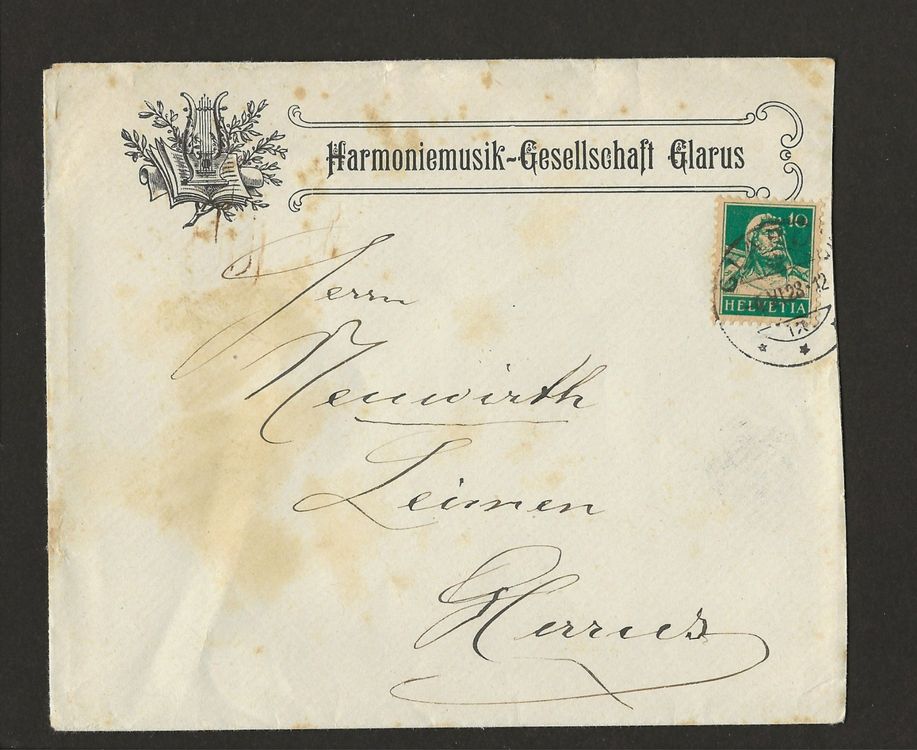 Harmoniemusik-Gesellschaft Glarus
10
HELVETIA
VI.28.-12
Herrn
Neuwirth
Leimen
Glarus